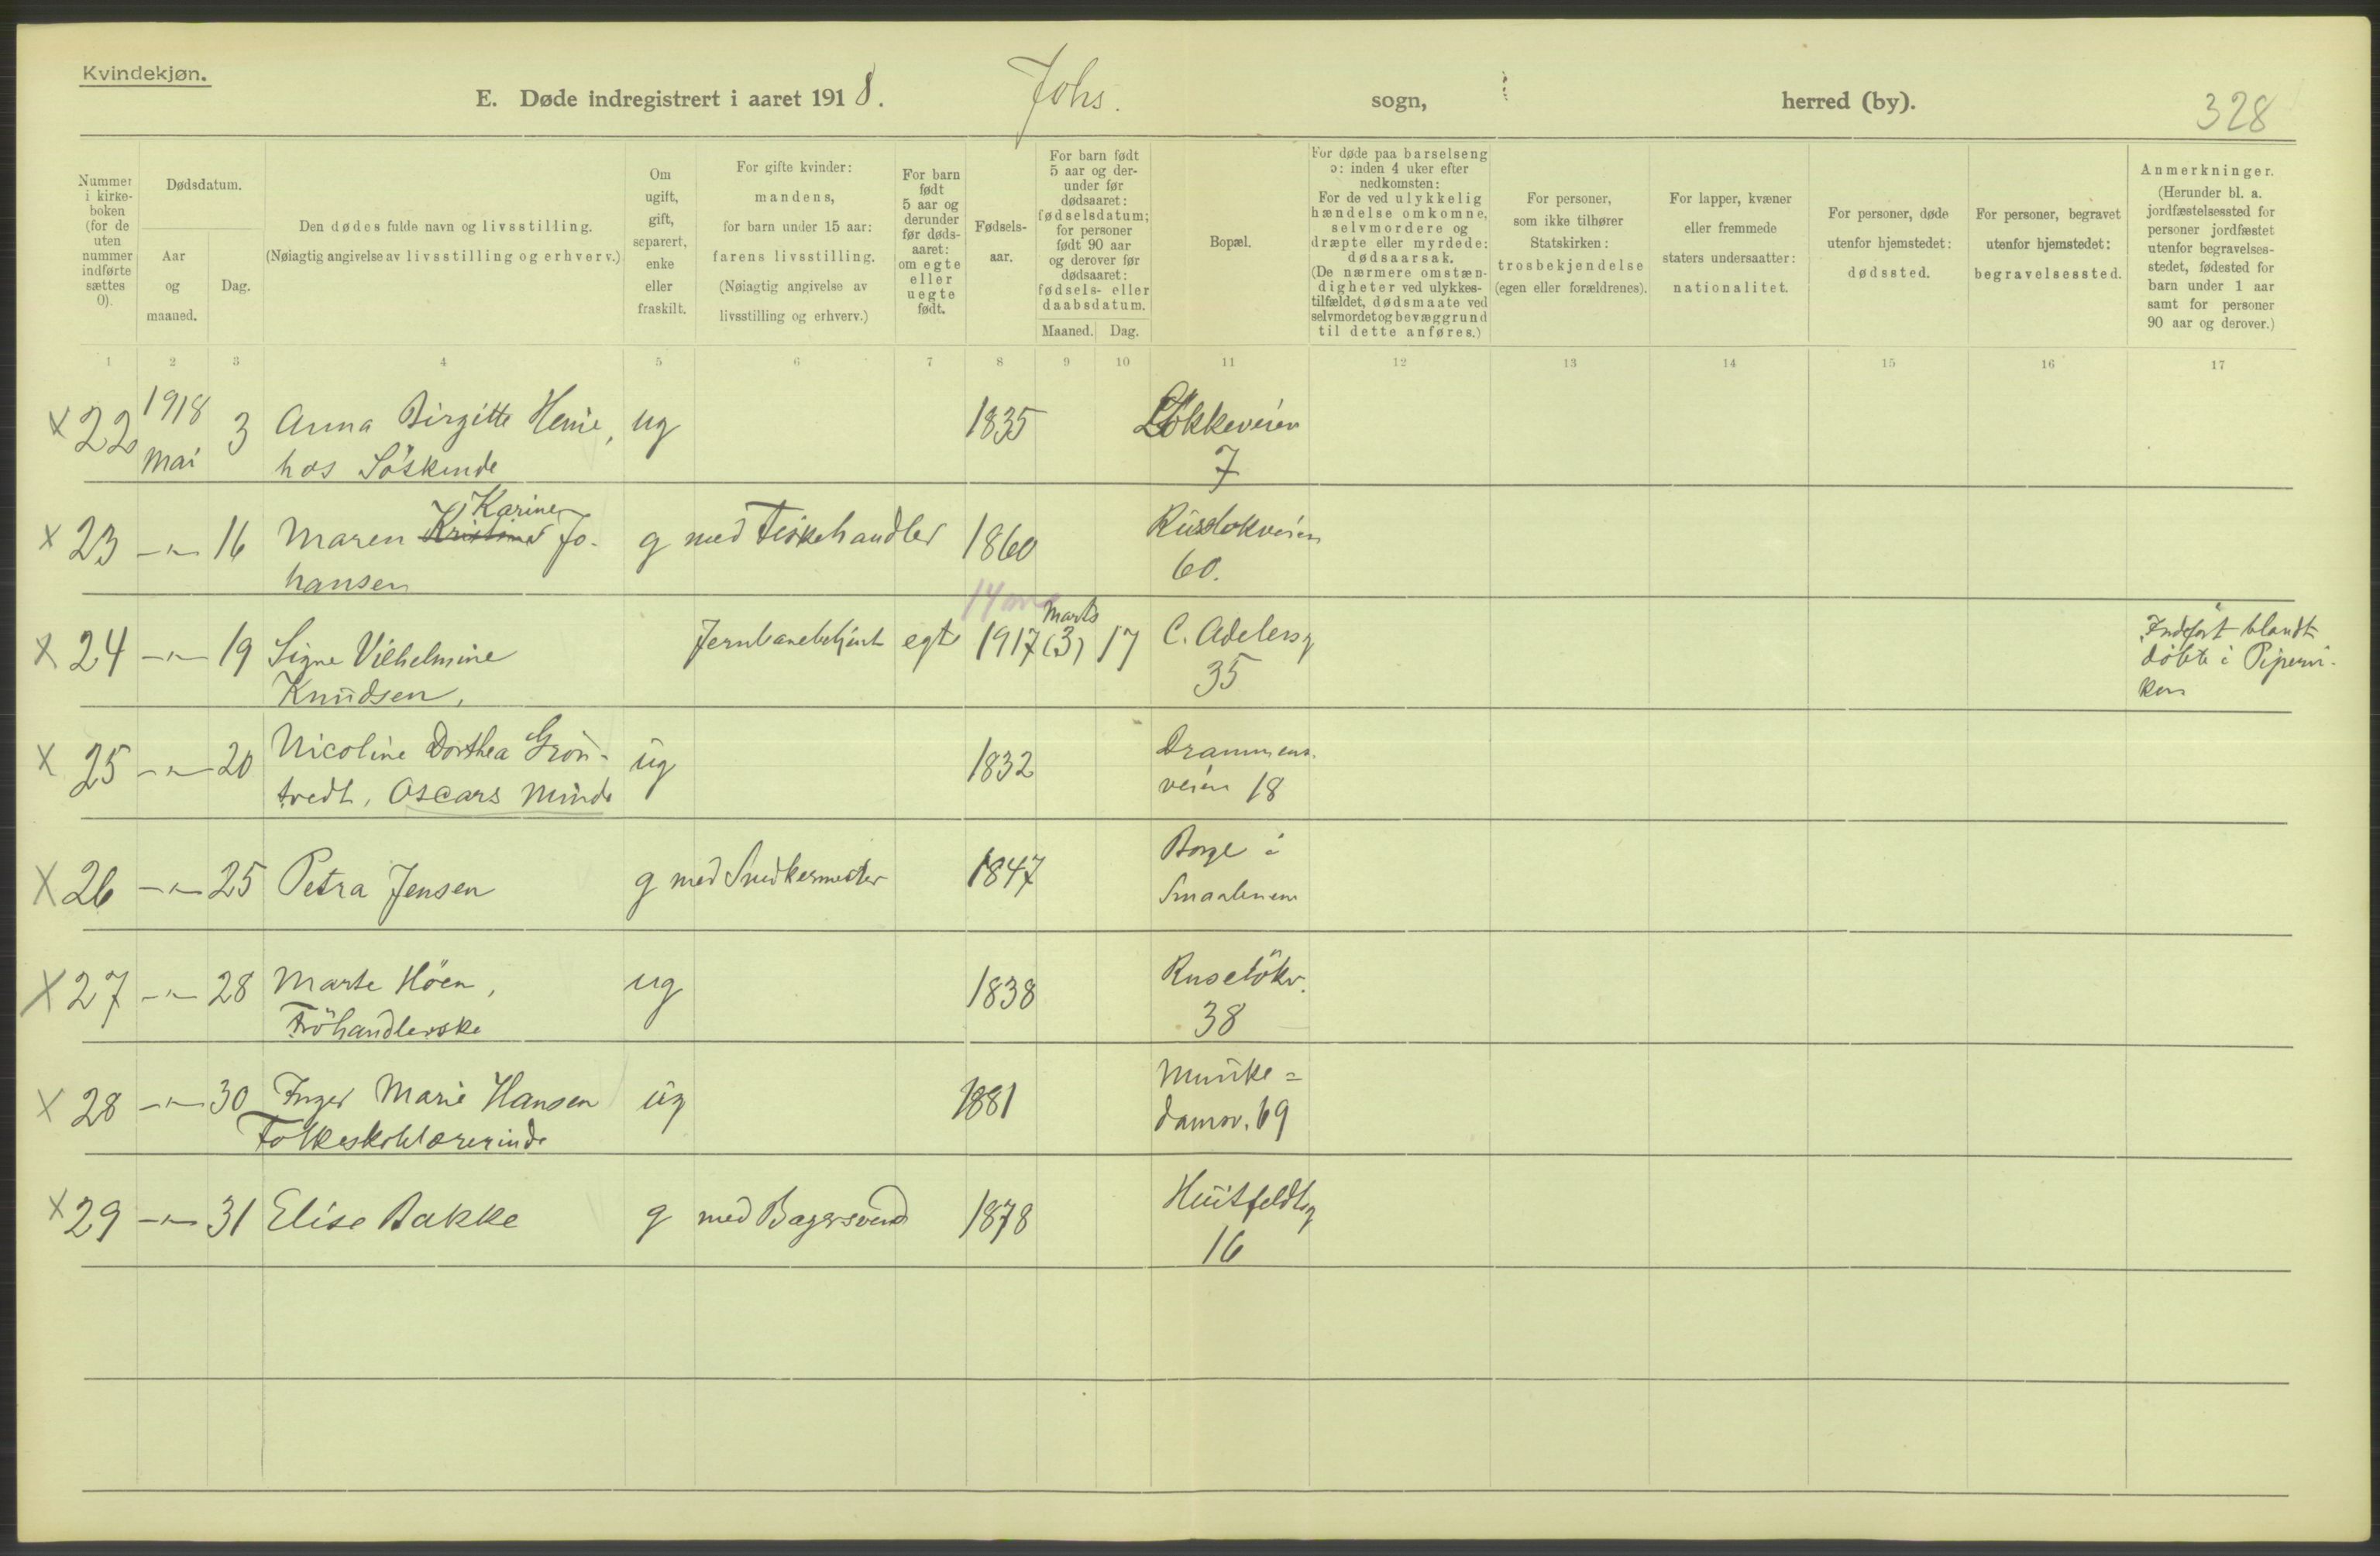 Kvindekjøn.
E. Døde indregistrert i aaret 1918. Johs. sogn, herred (by). 328
Nummer i kirkeboken (for de uten nummer indførte sættes 0).
Dødsdatum.
Aar og maaned.
Dag.
Den dødes fulde navn og livsstilling.
(Nøiagtig angivelse av livsstilling og erhverv.)
Om ugift, gift, separert, enke eller fraskilt.
For gifte kvinder: mandens, for barn under 15 aar: farens livsstilling.
(Nøiagtig angivelse av livsstilling og erhverv.)
For barn født 5 aar og derunder før dødsaaret: om egte eller uegte født.
Fødselsaar.
For barn født 5 aar og derunder før dødsaaret: fødselsdatum; for personer født 90 aar og derover før dødsaaret: fødsels- eller daabsdatum.
Maaned. Dag.
Bopæl.
For døde paa barselseng ɔ: inden 4 uker efter nedkomsten: For de ved ulykkelig hændelse omkomne, selvmordere og dræpte eller myrdede: dødsaarsak.
(De nærmere omstændigheter ved ulykkestilfældet, dødsmaate ved selvmordet og bevæggrund til dette anføres.)
For personer, som ikke tilhører Statskirken: trosbekjendelse (egen eller forældrenes).
For lapper, kvæner eller fremmede staters undersaatter: nationalitet.
For personer, døde utenfor hjemstedet: dødssted.
For personer, begravet utenfor hjemstedet: begravelsessted.
Anmerkninger.
(Herunder bl. a. jordfæstelsessted for personer jordfæstet utenfor begravelsesstedet, fødested for barn under 1 aar samt for personer 90 aar og derover.)
1 2 3 4 5 6 7 8 9 10 11 12 13 14 15 16 17
x 22 1918 Mai 3 Anna Birgitte Henie, ug 1835 Løkkeveien
hos Söskende 7
x 23 -"- 16 Maren Kristine Karine Jo- g med Fiskehandler 1860 Ruseløkveien
hansen 60.
x 24 -"- 19 Signe Vilhelmine Jernbanebetjent egte 1917 Marts (3) 17 C. Adelersg Indført blandt
Knudsen, 35 döbte i Pipervi-
ken
x 25 -"- 20 Nicoline Dorthea Grön- ug 1832 Drammens-
tvedt, Oscars Minde veien 18
x 26 -"- 25 Petra Jensen g med Snedkermester 1847 Borge i
Smaalenene
x 27 -"- 28 Marte Höen, ug 1838 Ruselökv.
Fröhandlerske 38
x 28 -"- 30 Inger Marie Hansen ug 1881 Munke=
Folkeskolelærerinde damsv. 69
x 29 -"- 31 Elise Bakke g med Bagersvend 1878 Huitfeldtsg
16